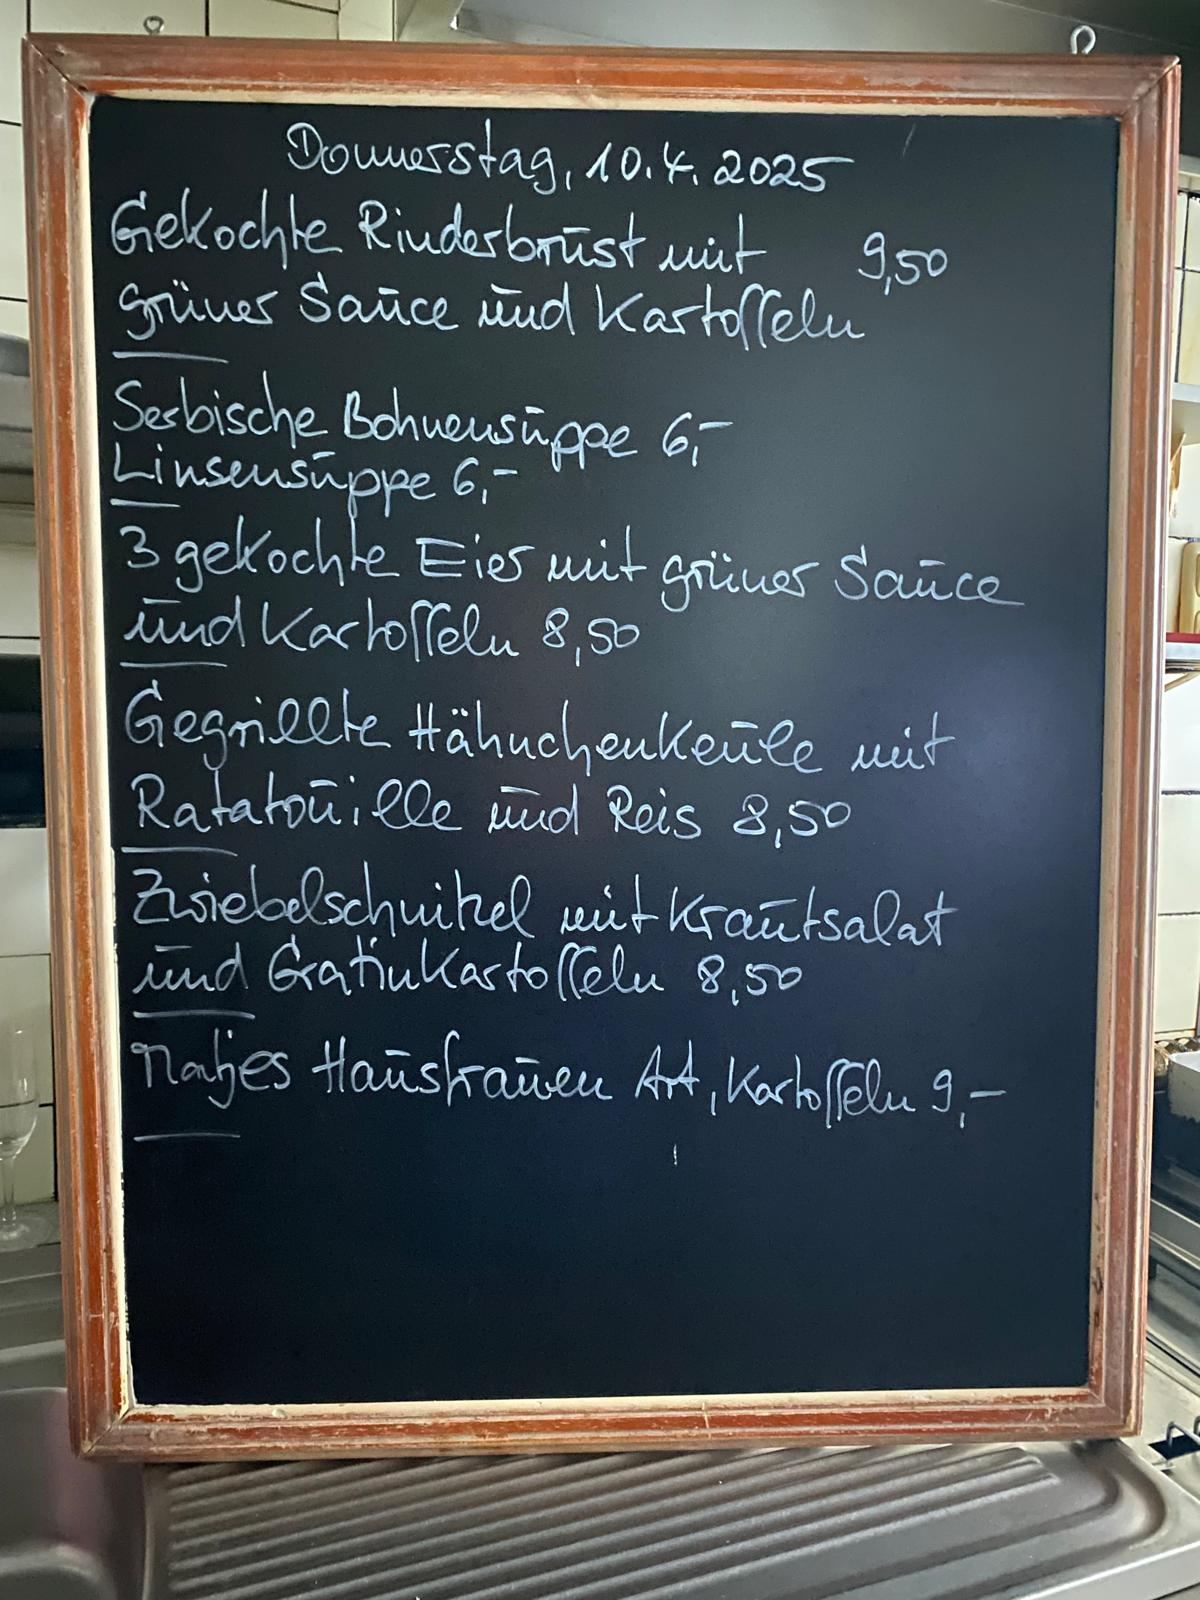 Donnerstag, 10.4.2025
Gekochte Rinderbrust mit 9,50
grüner Sauce und Kartoffeln
Serbische Bohnensuppe 6,-
Linsensuppe 6,-
3 gekochte Eier mit grüner Sauce
und Kartoffeln 8,50
Gegrillte Hähnchenkeule mit
Ratatouille und Reis 8,50
Zwiebelschnitzel mit Krautsalat
und Gratinkartoffeln 8,50
Matjes Hausfrauen Art, Kartoffeln 9,-